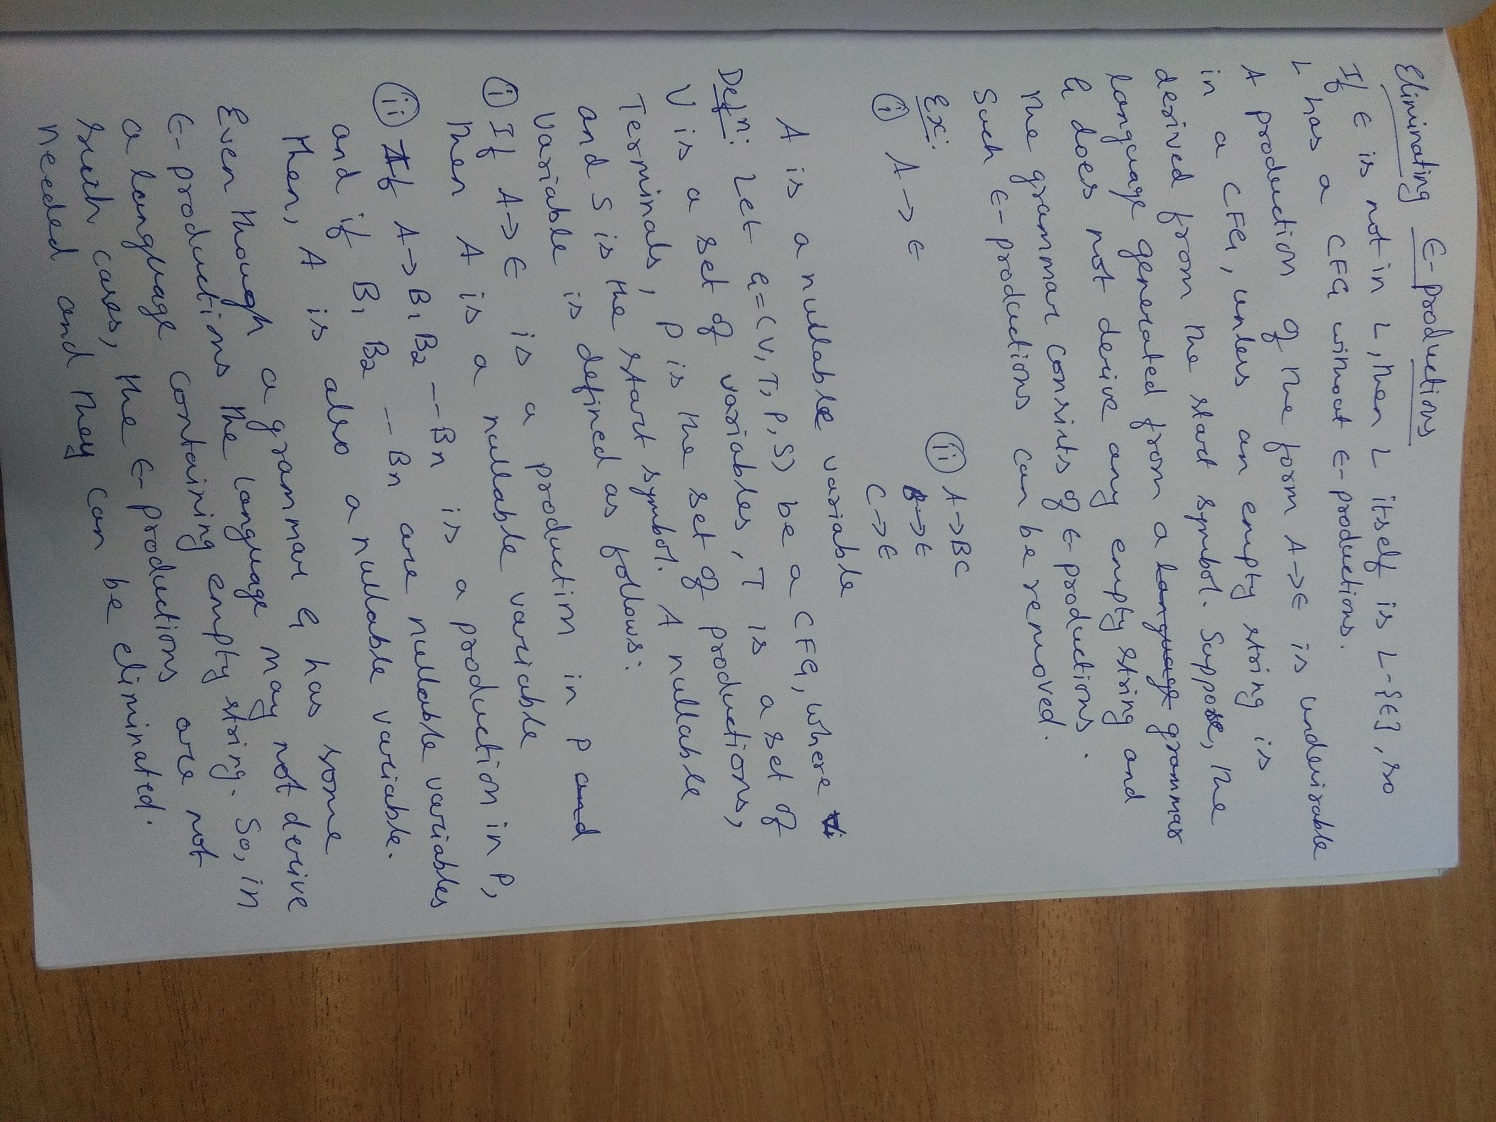 Eliminating ∈-productions
If ∈ is not in L, then L itself is L-{∈}, so
L has a CFG without ∈-productions.
A production of the form A→∈ is undesirable
in a CFG, unless an empty string is
derived from the start symbol. Suppose, the
language generated from a language grammar
G does not derive any empty string and
the grammar consists of ∈-productions.
Such ∈-productions can be removed.
Ex:
(i) A→∈
(ii) A→BC
B→∈
C→∈
A is a nullable variable
Defn: Let G=(V,T,P,S) be a CFG, where
V is a set of variables, T is a set of
Terminals, P is the set of productions,
and S is the start symbol. A nullable
variable is defined as follows:
(i) If A→∈ is a production in P and
then A is a nullable variable
(ii) If A→B1B2---Bn is a production in P,
and if B1 B2 --- Bn are nullable variables
then, A is also a nullable variable.
Even though a grammar G has some
∈-productions the language may not derive
a language containing empty string. So, in
such cases, the ∈-productions are not
needed and they can be eliminated.